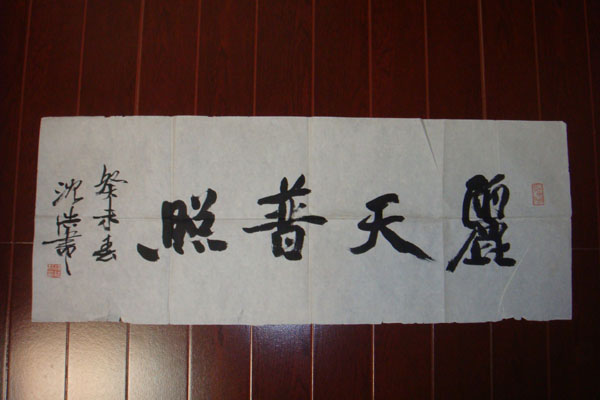 麗天普照
癸未春
沈浩書